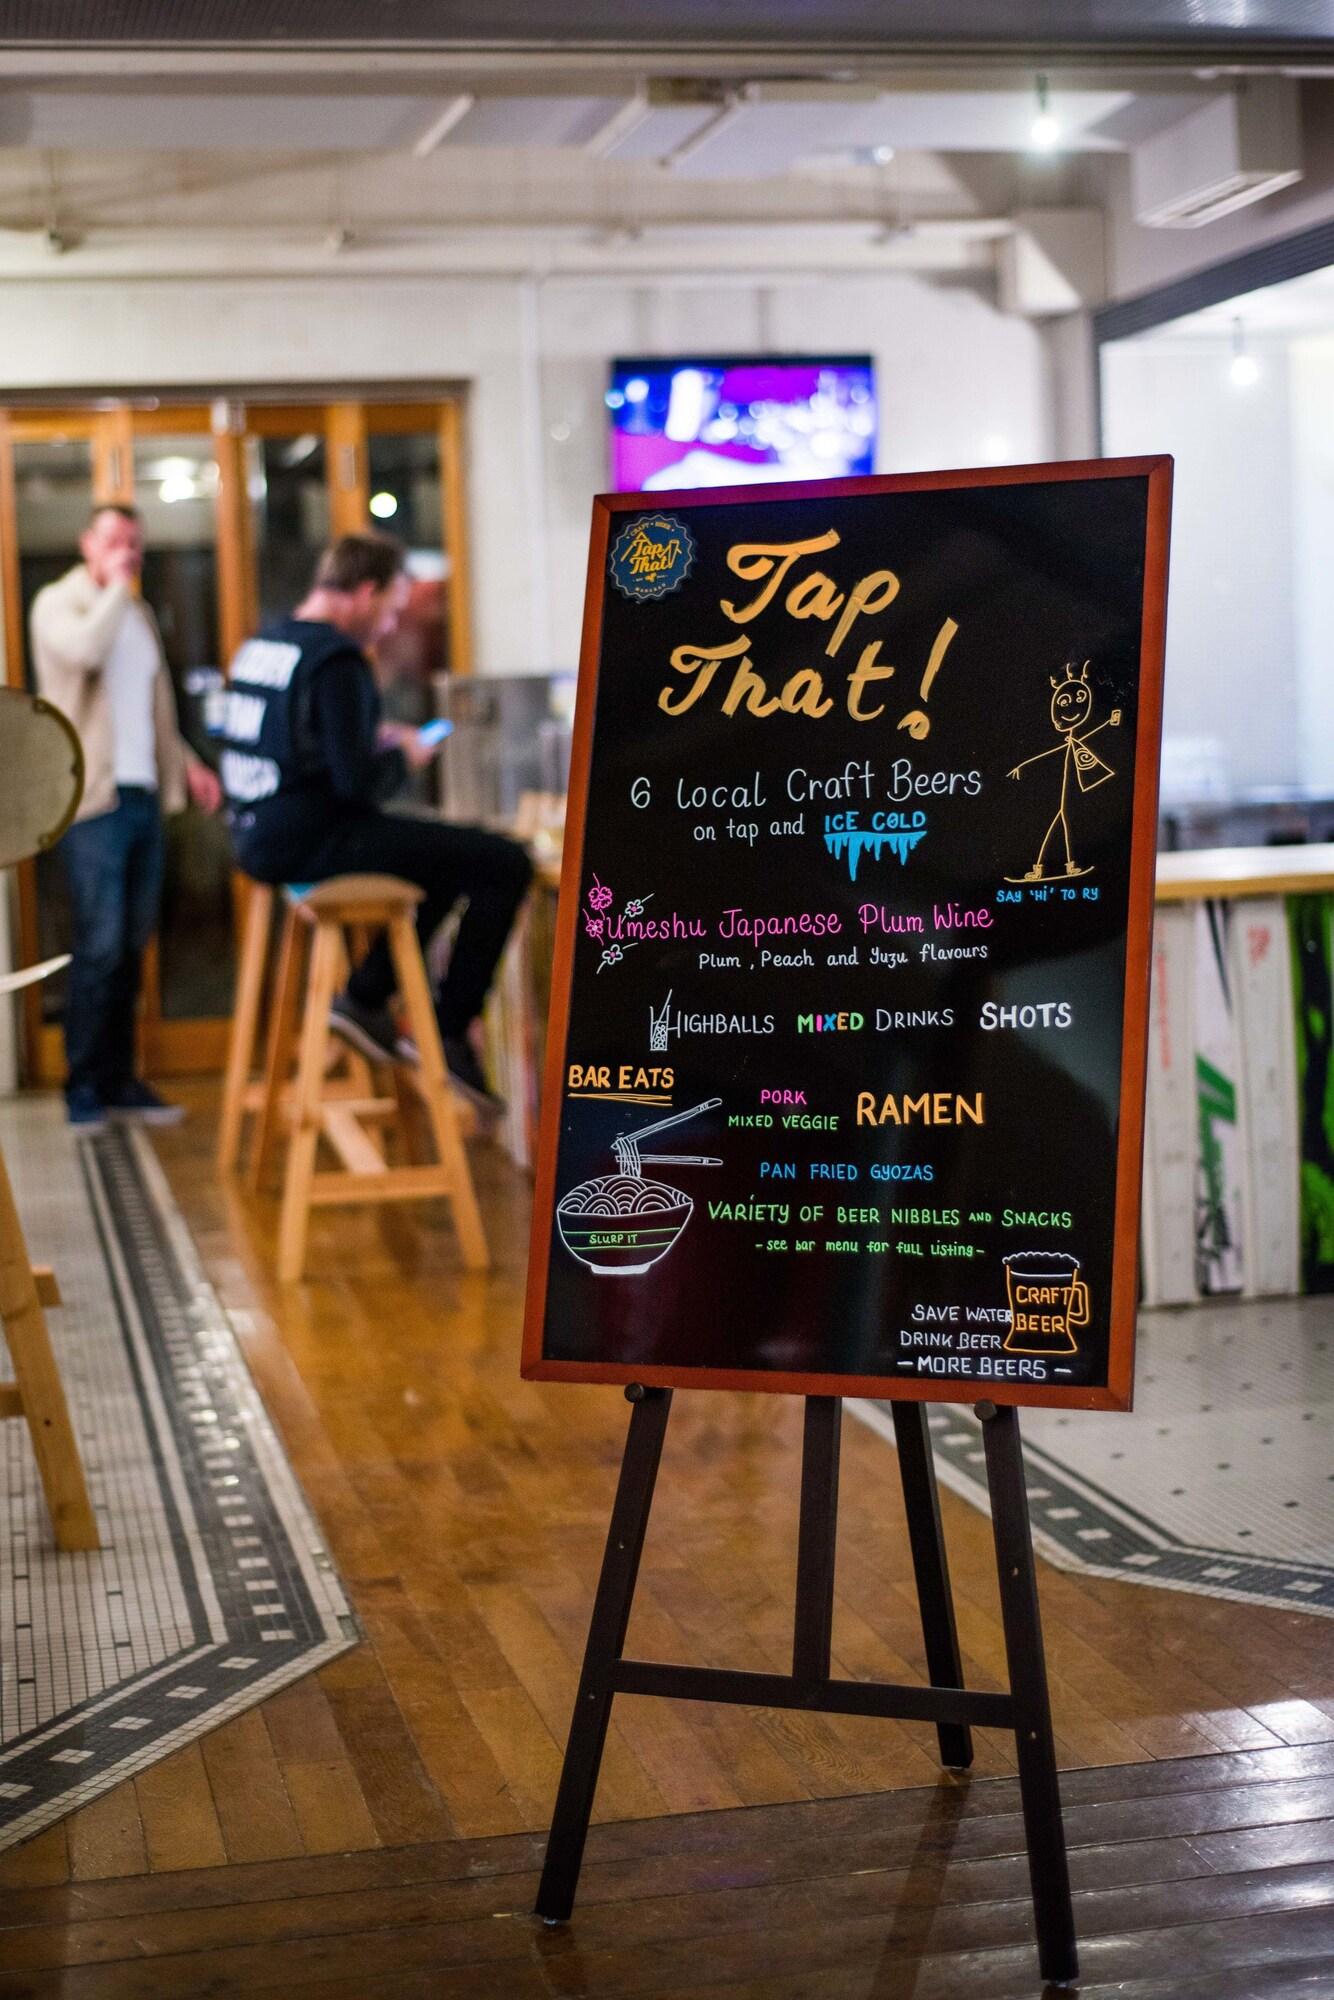 CRAFT • BEER
Tap
That
Tap
That!
6 local Craft Beers
on tap and ICE COLD
SAY 'Hi' TO RY
Umeshu Japanese Plum Wine
Plum, Peach and Yuzu flavours
HIGHBALLS MIXED DRINKS SHOTS
BAR EATS
PORK
MIXED VEGGIE RAMEN
PAN FRIED GYOZAS
VARIETY OF BEER NIBBLES AND SNACKS
- see bar menu for full listing -
SLURP IT
CRAFT
BEER
SAVE WATER
DRINK BEER
- MORE BEERS -